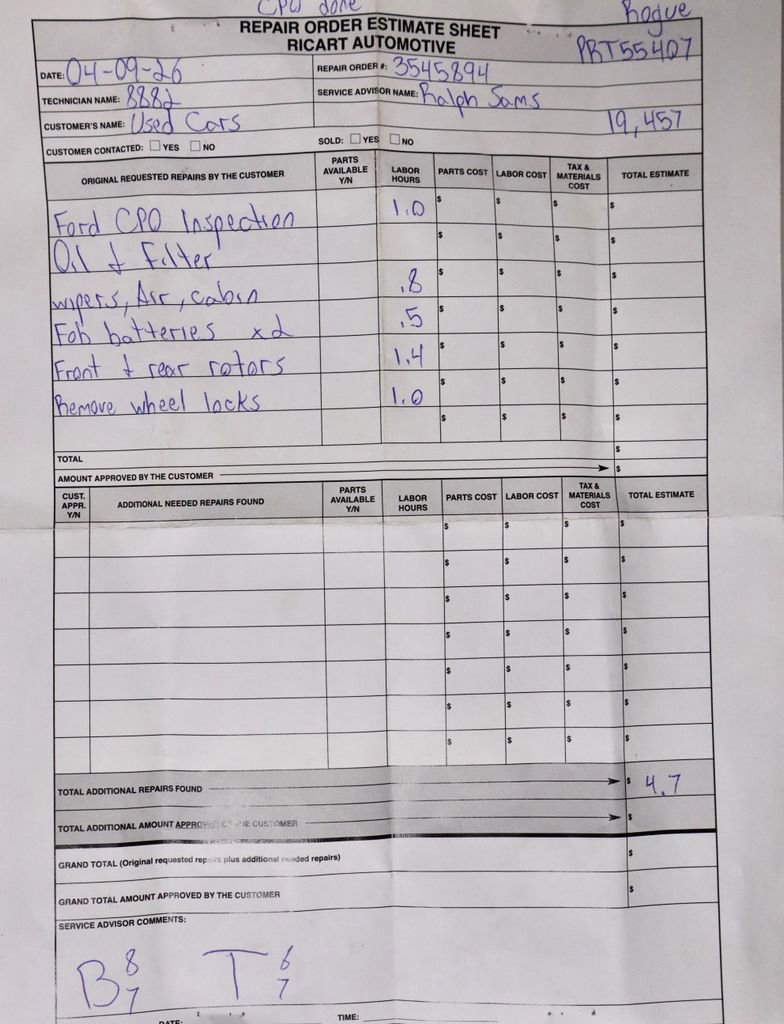 CPO done
Rogue
REPAIR ORDER ESTIMATE SHEET
RICART AUTOMOTIVE
PRT55407
DATE: 04-09-26
REPAIR ORDER #: 3545894
TECHNICIAN NAME: 8882
SERVICE ADVISOR NAME: Ralph Sams
CUSTOMER'S NAME: Used Cars
19,457
CUSTOMER CONTACTED: YES NO
SOLD: YES NO
ORIGINAL REQUESTED REPAIRS BY THE CUSTOMER PARTS AVAILABLE Y/N LABOR HOURS PARTS COST LABOR COST TAX & MATERIALS COST TOTAL ESTIMATE
Ford CPO Inspection 1.0 $ $ $ $
Oil & Filter $ $ $ $
wipers, Air, cabin .8 $ $ $ $
Fob batteries x2 .5 $ $ $ $
Front & rear rotors 1.4 $ $ $ $
Remove wheel locks 1.0 $ $ $ $
$ $ $ $
TOTAL $
AMOUNT APPROVED BY THE CUSTOMER $
CUST. APPR. Y/N ADDITIONAL NEEDED REPAIRS FOUND PARTS AVAILABLE Y/N LABOR HOURS PARTS COST LABOR COST TAX & MATERIALS COST TOTAL ESTIMATE
$ $ $ $
$ $ $ $
$ $ $ $
$ $ $ $
$ $ $ $
$ $ $ $
$ $ $ $
TOTAL ADDITIONAL REPAIRS FOUND $ 4.7
TOTAL ADDITIONAL AMOUNT APPROVED BY THE CUSTOMER $
GRAND TOTAL (Original requested repairs plus additional needed repairs) $
GRAND TOTAL AMOUNT APPROVED BY THE CUSTOMER $
SERVICE ADVISOR COMMENTS:
B 8 7 T 6 7
DATE: TIME: